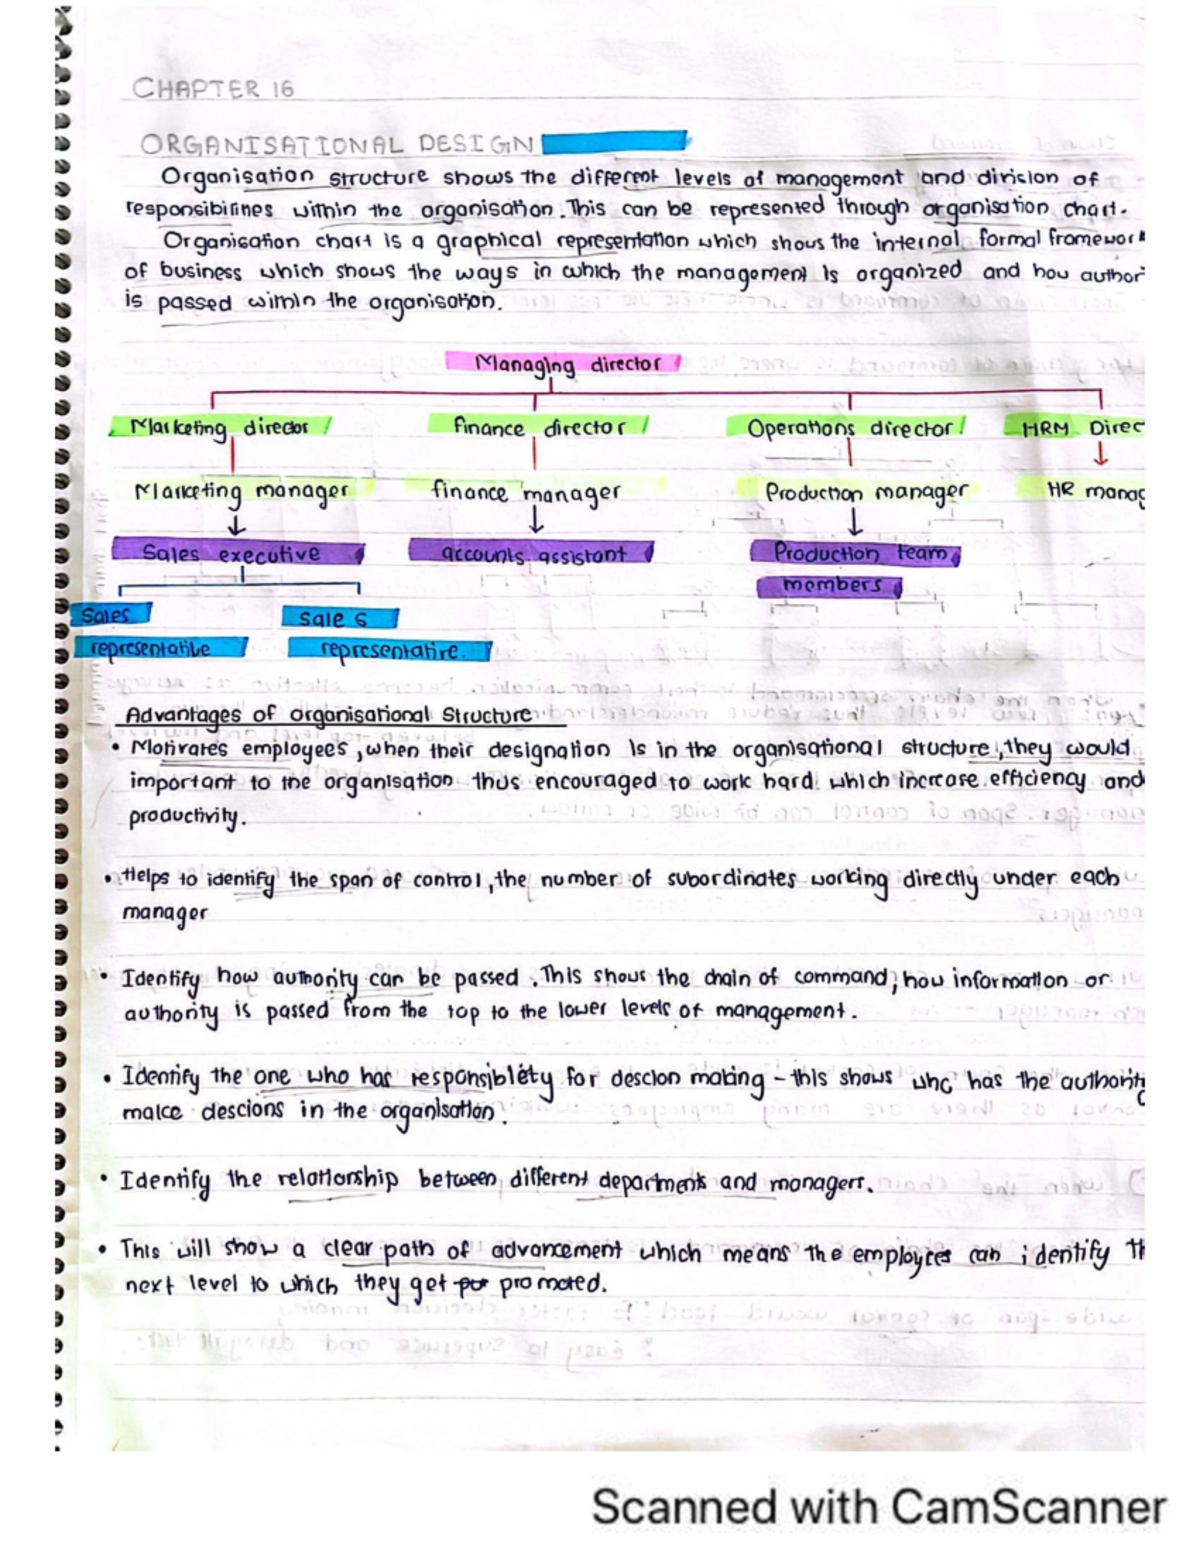 CHAPTER 16
ORGANISATIONAL DESIGN
Organisation structure shows the different levels of management and division of
responsibilities within the organisation. This can be represented through organisation chart.
Organisation chart is a graphical representation which shows the internal formal framework
of business which shows the ways in which the management is organized and how author
is passed within the organisation.
Managing director
Marketing director finance director Operations director HRM Direc
Marketing manager finance manager Production manager HR manag
Sales executive accounts assistant Production team
members
Sales Sales
representative representative
Advantages of Organisational Structure
• Motivates employees, when their designation is in the organisational structure, they would
important to the organisation thus encouraged to work hard which increase efficiency and
productivity.
• Helps to identify the span of control, the number of subordinates working directly under each
manager
• Identify how authority can be passed. This shows the chain of command, how information or
authority is passed from the top to the lower levels of management.
• Identify the one who has responsiblety for descion making - this shows who has the authorit
make descions in the organisation.
• Identify the relationship between different departments and managers.
• This will show a clear path of advancement which means the employees can identify th
next level to which they get promoted.
Scanned with CamScanner